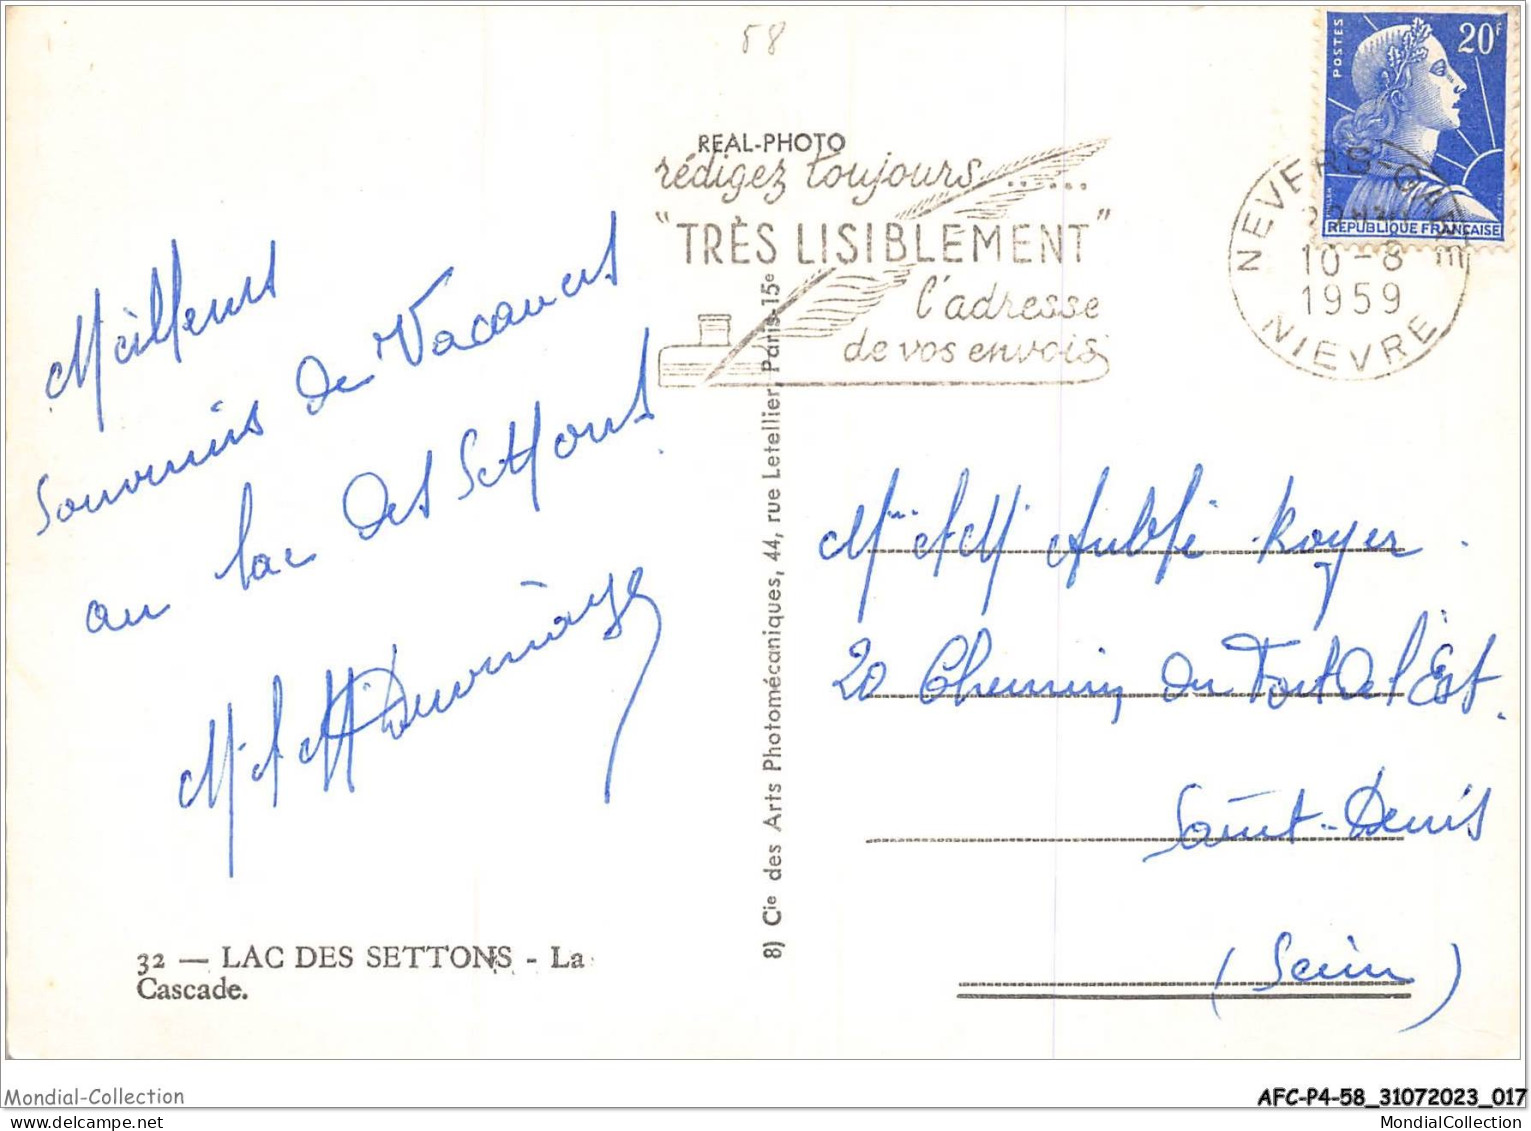 58
REAL-PHOTO
rédigez toujours ......
"TRÈS LISIBLEMENT"
l'adresse
de vos envois
POSTES
20F
REPUBLIQUE FRANÇAISE
NEVERS-GARE
10-8
1959
NIEVRE
Meilleurs
Souvenirs de Vacances
au lac des Settons
M. et M
32 — LAC DES SETTONS - La
Cascade.
8) Cie des Arts Photomécaniques, 44, rue Letellier, Paris-15e
et M Royer
20 Chemin du Fort de l'Est.
Saint-Denis
(Seine)
Mondial-Collection
AFC-P4-58_31072023_017
MondialCollection